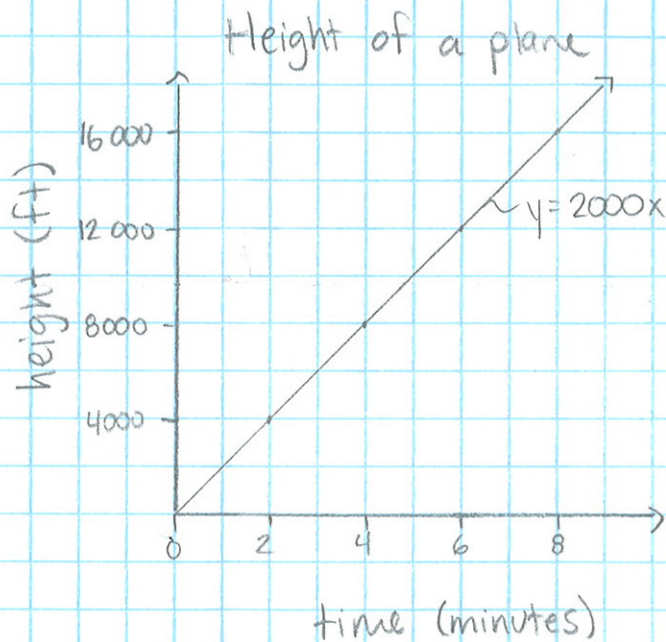 Height of a plane
height (ft)
16 000
12 000
8000
4000
y = 2000x
0 2 4 6 8
time (minutes)